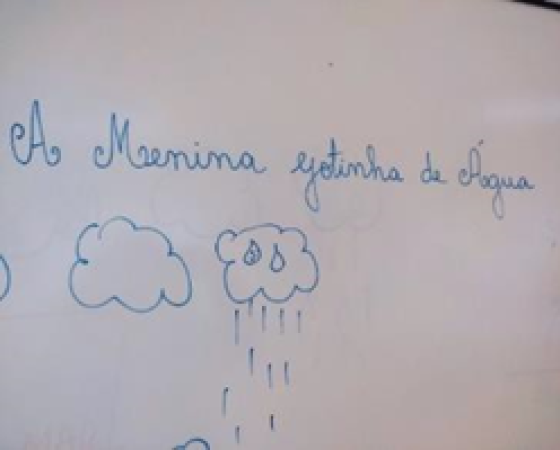 A Menina gotinha de Água